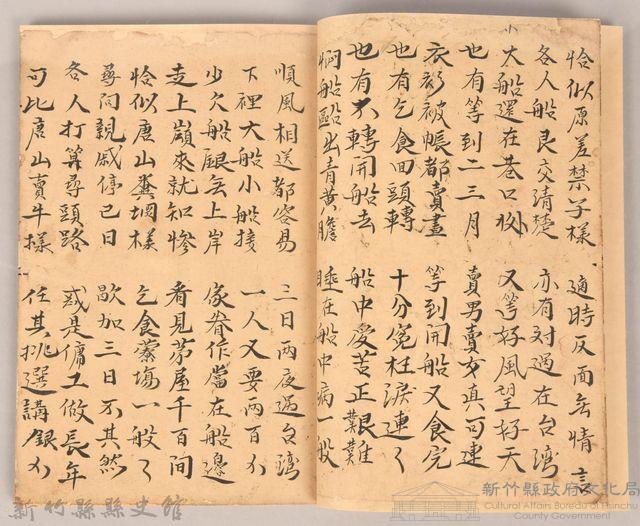 恰似原差禁子樣　適時反面無情言
各人船艮交清楚　亦有对過在台湾
大船還在巷口　又等好風望好天
也有等到二三月　賣男賣女真可連
衣衫被帳都賣盡　等到開船又食完
也有乞食回頭轉　十分冤枉淚連々
也有不轉開船去　船中受苦正艱難
船出青黄膽　睡在船中病一般
順風相送都容易　三日兩夜過台湾
下裡大船小船接　一人又要兩百
少欠船銀無上岸　家眷作當在船邊
走上嶺來就知慘　看見茅屋千百間
恰似唐山糞堈樣　乞食藔塲一般々
尋问親戚停已日　歇加三日不其然
各人打算尋頭路　或是傭工做長年
可比唐山賣牛樣　任其挑選講銀
新竹縣縣史館
新竹縣政府文化局
Cultural Affairs Bureau of Hsinchu
County Government